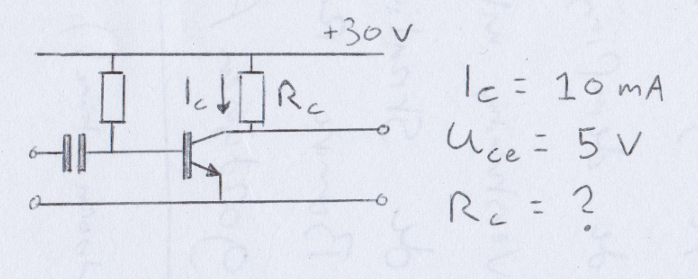 +30 V
Ic Rc
Ic = 10 mA
Uce = 5 V
Rc = ?